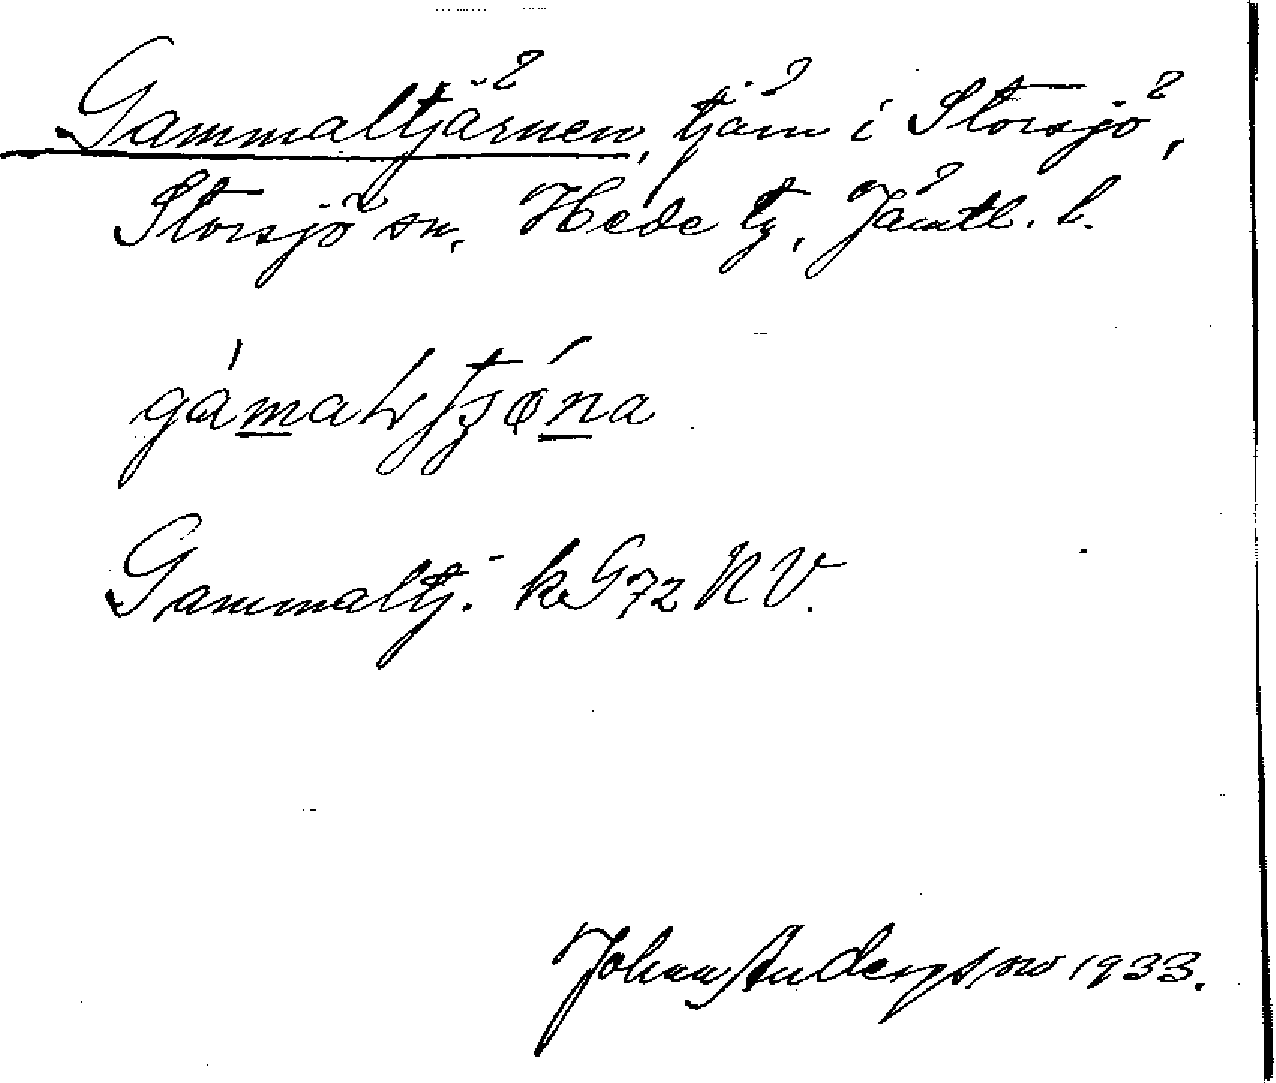 Gammaltjärnen, tjärn i Storsjö,
Storsjö sn, Hede tg, Jämtl. l.
Gammaltj. k G72 NV.
Johan Andersson 1933.